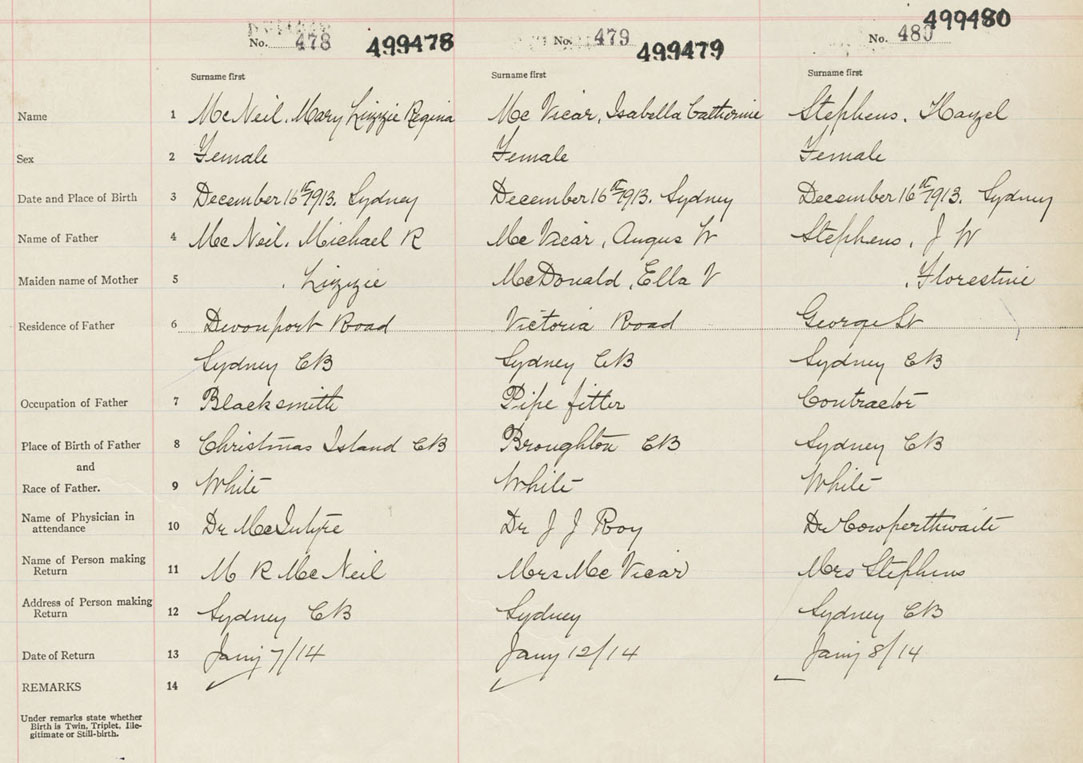 No. 478 499478 No. 479 499479 No. 480 499480
Surname first Surname first Surname first
Name 1 McNeil, Mary Lizzie Regina Mc Vicar, Isabella Catherine Stephens, Hazel
Sex 2 Female Female Female
Date and Place of Birth 3 December 16th 1913. Sydney December 16th 1913. Sydney December 16th 1913. Sydney
Name of Father 4 McNeil. Michael R Mc Vicar, Angus W Stephens, J W
Maiden name of Mother 5 , Lizzie McDonald, Ella V , Florestine
Residence of Father 6 Devonport Road Victoria Road George St
Sydney CB Sydney CB Sydney CB
Occupation of Father 7 Blacksmith Pipe fitter Contractor
Place of Birth of Father 8 Christmas Island CB Broughton CB Sydney CB
and
Race of Father. 9 White White White
Name of Physician in
attendance 10 Dr McIntyre Dr J J Roy Dr Cowperthwaite
Name of Person making
Return 11 M R McNeil Mrs Mc Vicar Mrs Stephens
Address of Person making
Return 12 Sydney CB Sydney Sydney CB
Date of Return 13 Jany 7/14 Jany 12/14 Jany 8/14
REMARKS 14
Under remarks state whether
Birth is Twin, Triplet, Ille-
gitimate or Still-birth.